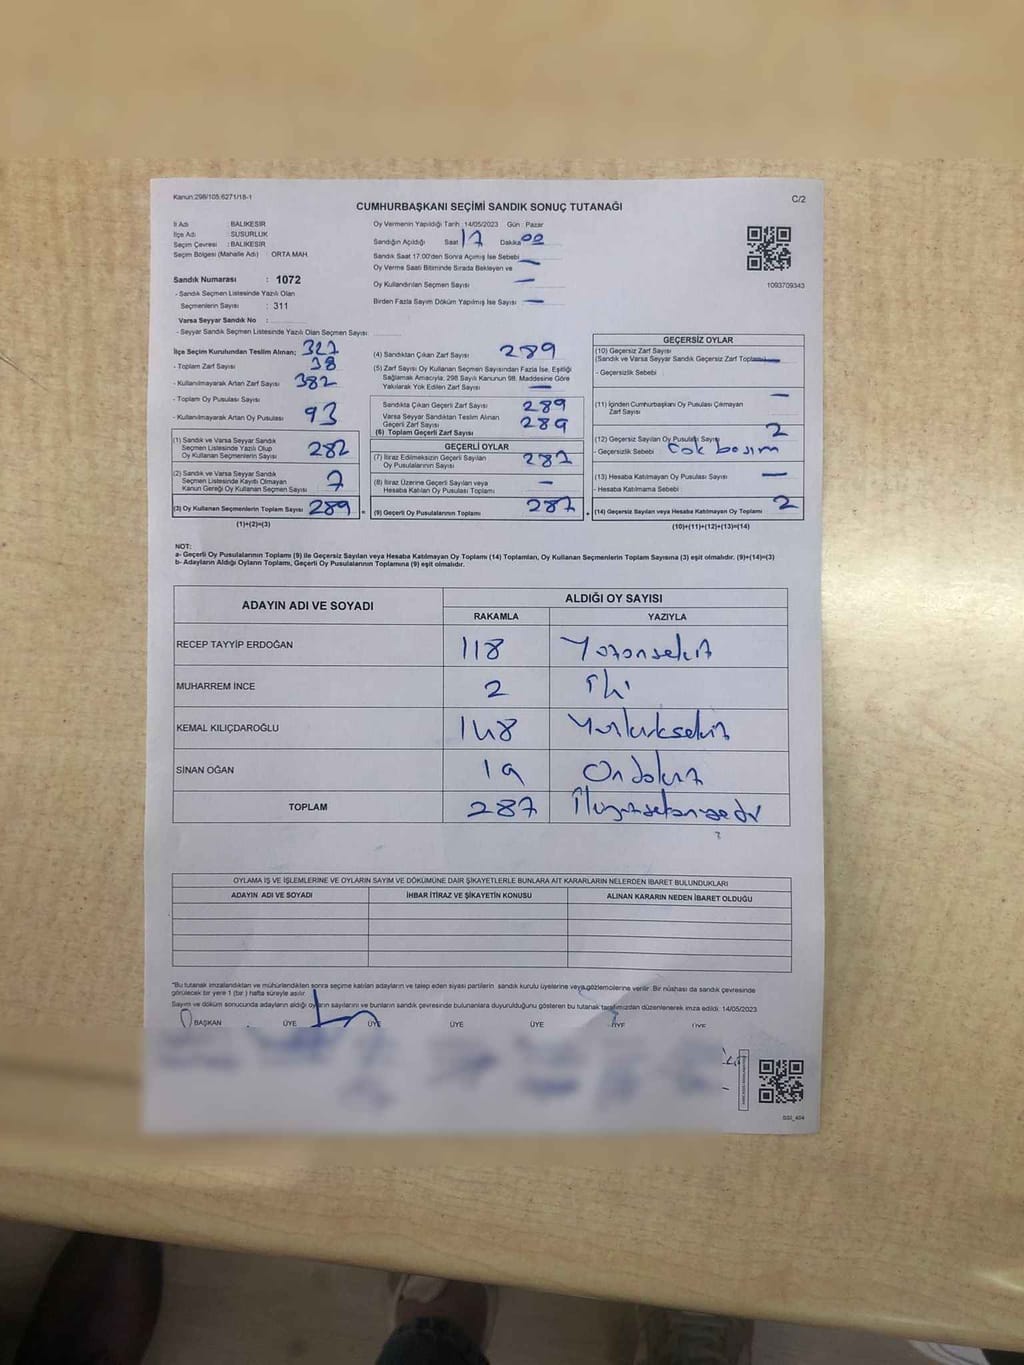 Kanun:298/105;6271/18-1
C/2
CUMHURBAŞKANI SEÇİMİ SANDIK SONUÇ TUTANAĞI
İl Adı : BALIKESİR
İlçe Adı : SUSURLUK
Seçim Çevresi : BALIKESİR
Seçim Bölgesi (Mahalle Adı) : ORTA MAH.
Sandık Numarası : 1072
- Sandık Seçmen Listesinde Yazılı Olan
Seçmenlerin Sayısı : 311
Varsa Seyyar Sandık No :
- Seyyar Sandık Seçmen Listesinde Yazılı Olan Seçmen Sayısı:
Oy Vermenin Yapıldığı Tarih :14/05/2023 Gün : Pazar
Sandığın Açıldığı Saat 17 Dakika 00
Sandık Saat 17:00'den Sonra Açımış İse Sebebi —
Oy Verme Saati Bitiminde Sırada Bekleyen ve
Oy Kullandırılan Seçmen Sayısı —
Birden Fazla Sayım Döküm Yapılmış İse Sayısı —
1093709343
İlçe Seçim Kurulundan Teslim Alınan; 327
- Toplam Zarf Sayısı 38
- Kullanılmayarak Artan Zarf Sayısı 382
- Toplam Oy Pusulası Sayısı
- Kullanılmayarak Artan Oy Pusulası 93
(1) Sandık ve Varsa Seyyar Sandık
Seçmen Listesinde Yazılı Olup
Oy Kullanan Seçmenlerin Sayısı 282
(2) Sandık ve Varsa Seyyar Sandık
Seçmen Listesinde Kayıtlı Olmayan
Kanun Gereği Oy Kullanan Seçmen Sayısı 7
(3) Oy Kullanan Seçmenlerin Toplam Sayısı 289
(1)+(2)=(3)
(4) Sandıktan Çıkan Zarf Sayısı 289
(5) Zarf Sayısı Oy Kullanan Seçmen Sayısından Fazla İse, Eşitliği
Sağlamak Amacıyla; 298 Sayılı Kanunun 98. Maddesine Göre
Yakılarak Yok Edilen Zarf Sayısı —
Sandıkta Çıkan Geçerli Zarf Sayısı 289
Varsa Seyyar Sandıktan Teslim Alınan
Geçerli Zarf Sayısı 289
(6) Toplam Geçerli Zarf Sayısı
GEÇERLİ OYLAR
(7) İtiraz Edilmeksizin Geçerli Sayılan
Oy Pusulalarının Sayısı 287
(8) İtiraz Üzerine Geçerli Sayılan veya
Hesaba Katılan Oy Pusulası Toplamı —
(9) Geçerli Oy Pusulalarının Toplamı 287
GEÇERSİZ OYLAR
(10) Geçersiz Zarf Sayısı
(Sandık ve Varsa Seyyar Sandık Geçersiz Zarf Toplamı) —
- Geçersizlik Sebebi
(11) İçinden Cumhurbaşkanı Oy Pusulası Çıkmayan
Zarf Sayısı —
(12) Geçersiz Sayılan Oy Pusulası Sayısı 2
- Geçersizlik Sebebi Çok basım
(13) Hesaba Katılmayan Oy Pusulası Sayısı —
- Hesaba Katılmama Sebebi
(14) Geçersiz Sayılan veya Hesaba Katılmayan Oy Toplamı 2
(10)+(11)+(12)+(13)=(14)
NOT:
a- Geçerli Oy Pusulalarının Toplamı (9) ile Geçersiz Sayılan veya Hesaba Katılmayan Oy Toplamı (14) Toplamları, Oy Kullanan Seçmenlerin Toplam Sayısına (3) eşit olmalıdır. (9)+(14)=(3)
b- Adayların Aldığı Oyların Toplamı, Geçerli Oy Pusulalarının Toplamına (9) eşit olmalıdır.
ADAYIN ADI VE SOYADI
ALDIĞI OY SAYISI
RAKAMLA YAZIYLA
RECEP TAYYİP ERDOĞAN 118 Yüzonsekiz
MUHARREM İNCE 2 İki
KEMAL KILIÇDAROĞLU 148 Yüzkırksekiz
SİNAN OĞAN 19 Ondokuz
TOPLAM 287 İkiyüzseksenyedi
OYLAMA İŞ VE İŞLEMLERİNE VE OYLARIN SAYIM VE DÖKÜMÜNE DAİR ŞİKAYETLERLE BUNLARA AİT KARARLARIN NELERDEN İBARET BULUNDUKLARI
ADAYIN ADI VE SOYADI İHBAR İTİRAZ VE ŞİKAYETİN KONUSU ALINAN KARARIN NEDEN İBARET OLDUĞU
*Bu tutanak imzalandıktan ve mühürlendikten sonra seçime katılan adayların ve talep eden siyasi partilerin sandık kurulu üyelerine veya gözlemcilerine verilir. Bir nüshası da sandık çevresinde
görülecek bir yere 1 (bir) hafta süreyle asılır.
Sayım ve döküm sonucunda adayların aldığı oyların sayılarını ve bunların sandık çevresinde bulunanlara duyurulduğunu gösteren bu tutanak tarafımızdan düzenlenerek imza edildi. 14/05/2023
BAŞKAN ÜYE ÜYE ÜYE ÜYE ÜYE ÜYE